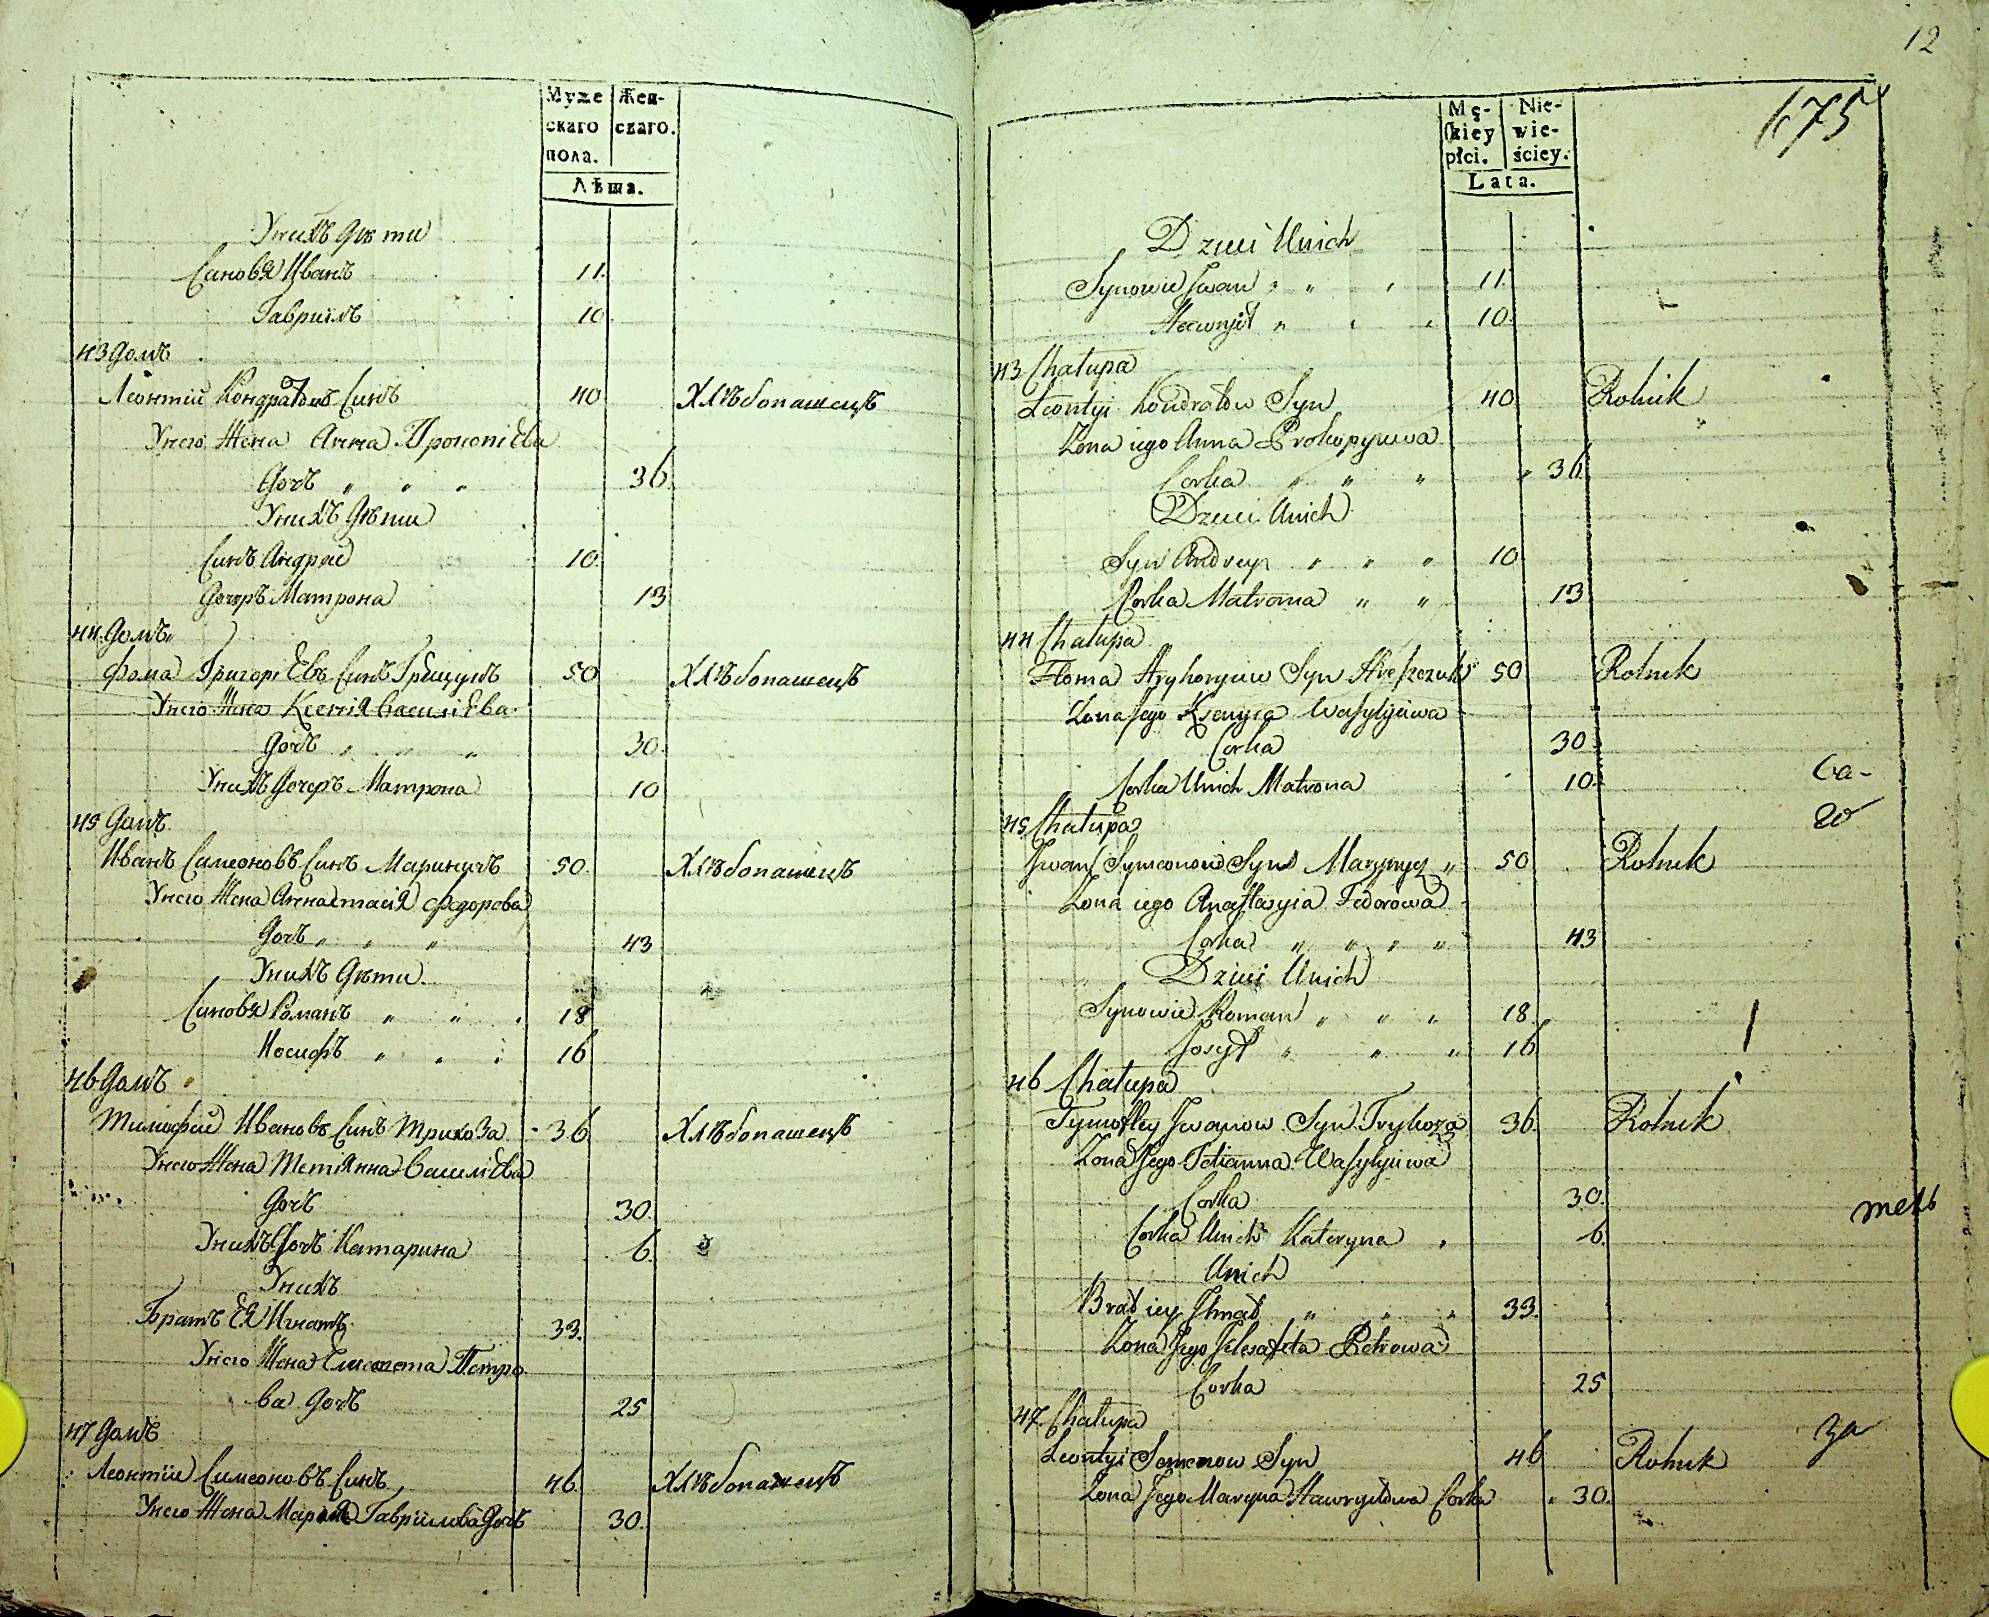 Муже скаго пола. Жен- скаго.
Лѣта.
Унихъ Дѣти
Синовя Иванъ 11.
Гавриілъ 10.
43 Домъ
Леонтій Кондратовъ Синъ 40 Хлѣбопашецъ
Унего Жена Анна Прокопіева
Дочъ „ „ „ 36.
Унихъ Дѣти
Синъ Андрей 10.
Дочеръ Матрона 13
44 Домъ
Фома Григорiевъ Синъ Грещукъ 50 Хлѣбопашецъ
Унего Жена Ксенія Василіева
Дочъ „ „ „ 30.
Унихъ Дочеръ Матрона 10
45 Домъ
Иванъ Симеоновъ Синъ Мариничъ 50. Хлѣбопашецъ
Унего Жена Аннастасія Федорова
Дочъ „ „ „ 43
Унихъ Дѣти
Синовя Романъ „ „ 18
Иосифъ „ „ 16
46 Домъ
Тимофей Ивановъ Синъ Трихоза 36 Хлѣбопашецъ
Унего Жена Тетіянна Василіева
Дочъ 30.
Унихъ Дочъ Катарина 6.
Унихъ
Братъ Ея Игнатъ 33.
Унего Жена Елисавета Петро
ва Дочъ 25
47 Домъ
Леонтій Симеоновъ Синъ 46. Хлѣбопашецъ
Унего Жена Марія Гавриілова Дочъ 30.
12
175
Mę- skiey płci. Nie- wie- ściey.
Lata.
Dzieci Unich
Synowie Jwan „ „ 11.
Hawryił „ „ 10.
43 Chałupa
Leontyi Kondratow Syn 40 Rolnik
Zona iego Anna Prokopyiewa
Corka „ „ „ 36
Dzieci Unich
Syn Andrey „ „ „ 10
Corka Matrona „ „ 13
44 Chałupa
Floma Hryhoryiew Syn Hreszczuk 50 Rolnik
Zona Jego Ksenyia Wasylyiewa
Corka 30
Corka Unich Matrona 10.
Са-
45 Chałupa
Jwan Symeonow Syn Marynycz „ 50 Rolnik
Zona iego Anastasyia Fedorowa
Corka „ „ „ „ 43
Dzieci Unich
Synowie Roman „ „ „ 18.
Josyf „ „ „ 16
46 Chałupa
Tymoftey Jwanow Syn Trykoza 36. Rolnik
Zona Jego Tetianna Wasylyiewa
Corka 30.
тель
Corka Unich Kateryna 6.
Unich
Brat iey Jhnat „ „ „ 33.
Zona Jego Jelesafeta Petrowa
Corka 25
47 Chałupa
за
Leontyi Semenow Syn 46 Rolnik
Zona Jego Maryna Hawryłowa Corka „ 30.